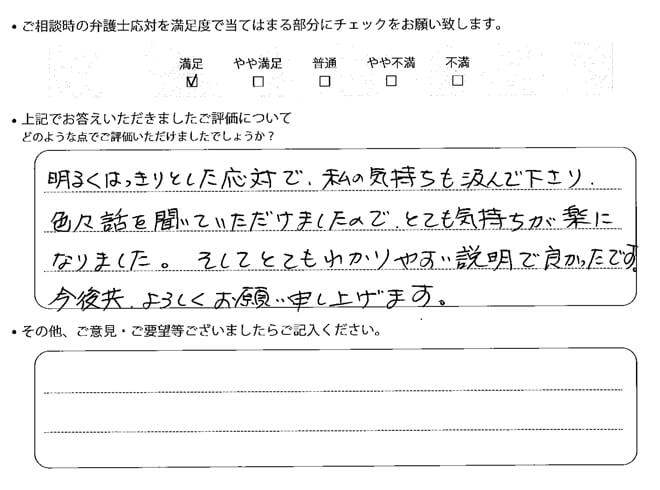 • ご相談時の弁護士応対を満足度で当てはまる部分にチェックをお願い致します。
満足 やや満足 普通 やや不満 不満
☑ □ □ □ □
• 上記でお答えいただきましたご評価について
どのような点でご評価いただけましたでしょうか？
明るくはっきりとした応対で、私の気持ちも汲んで下さり、
色々話を聞いていただけましたので、とても気持ちが楽に
なりました。そしてとてもわかりやすい説明で良かったです。
今後共、よろしくお願い申し上げます。
• その他、ご意見・ご要望等ございましたらご記入ください。